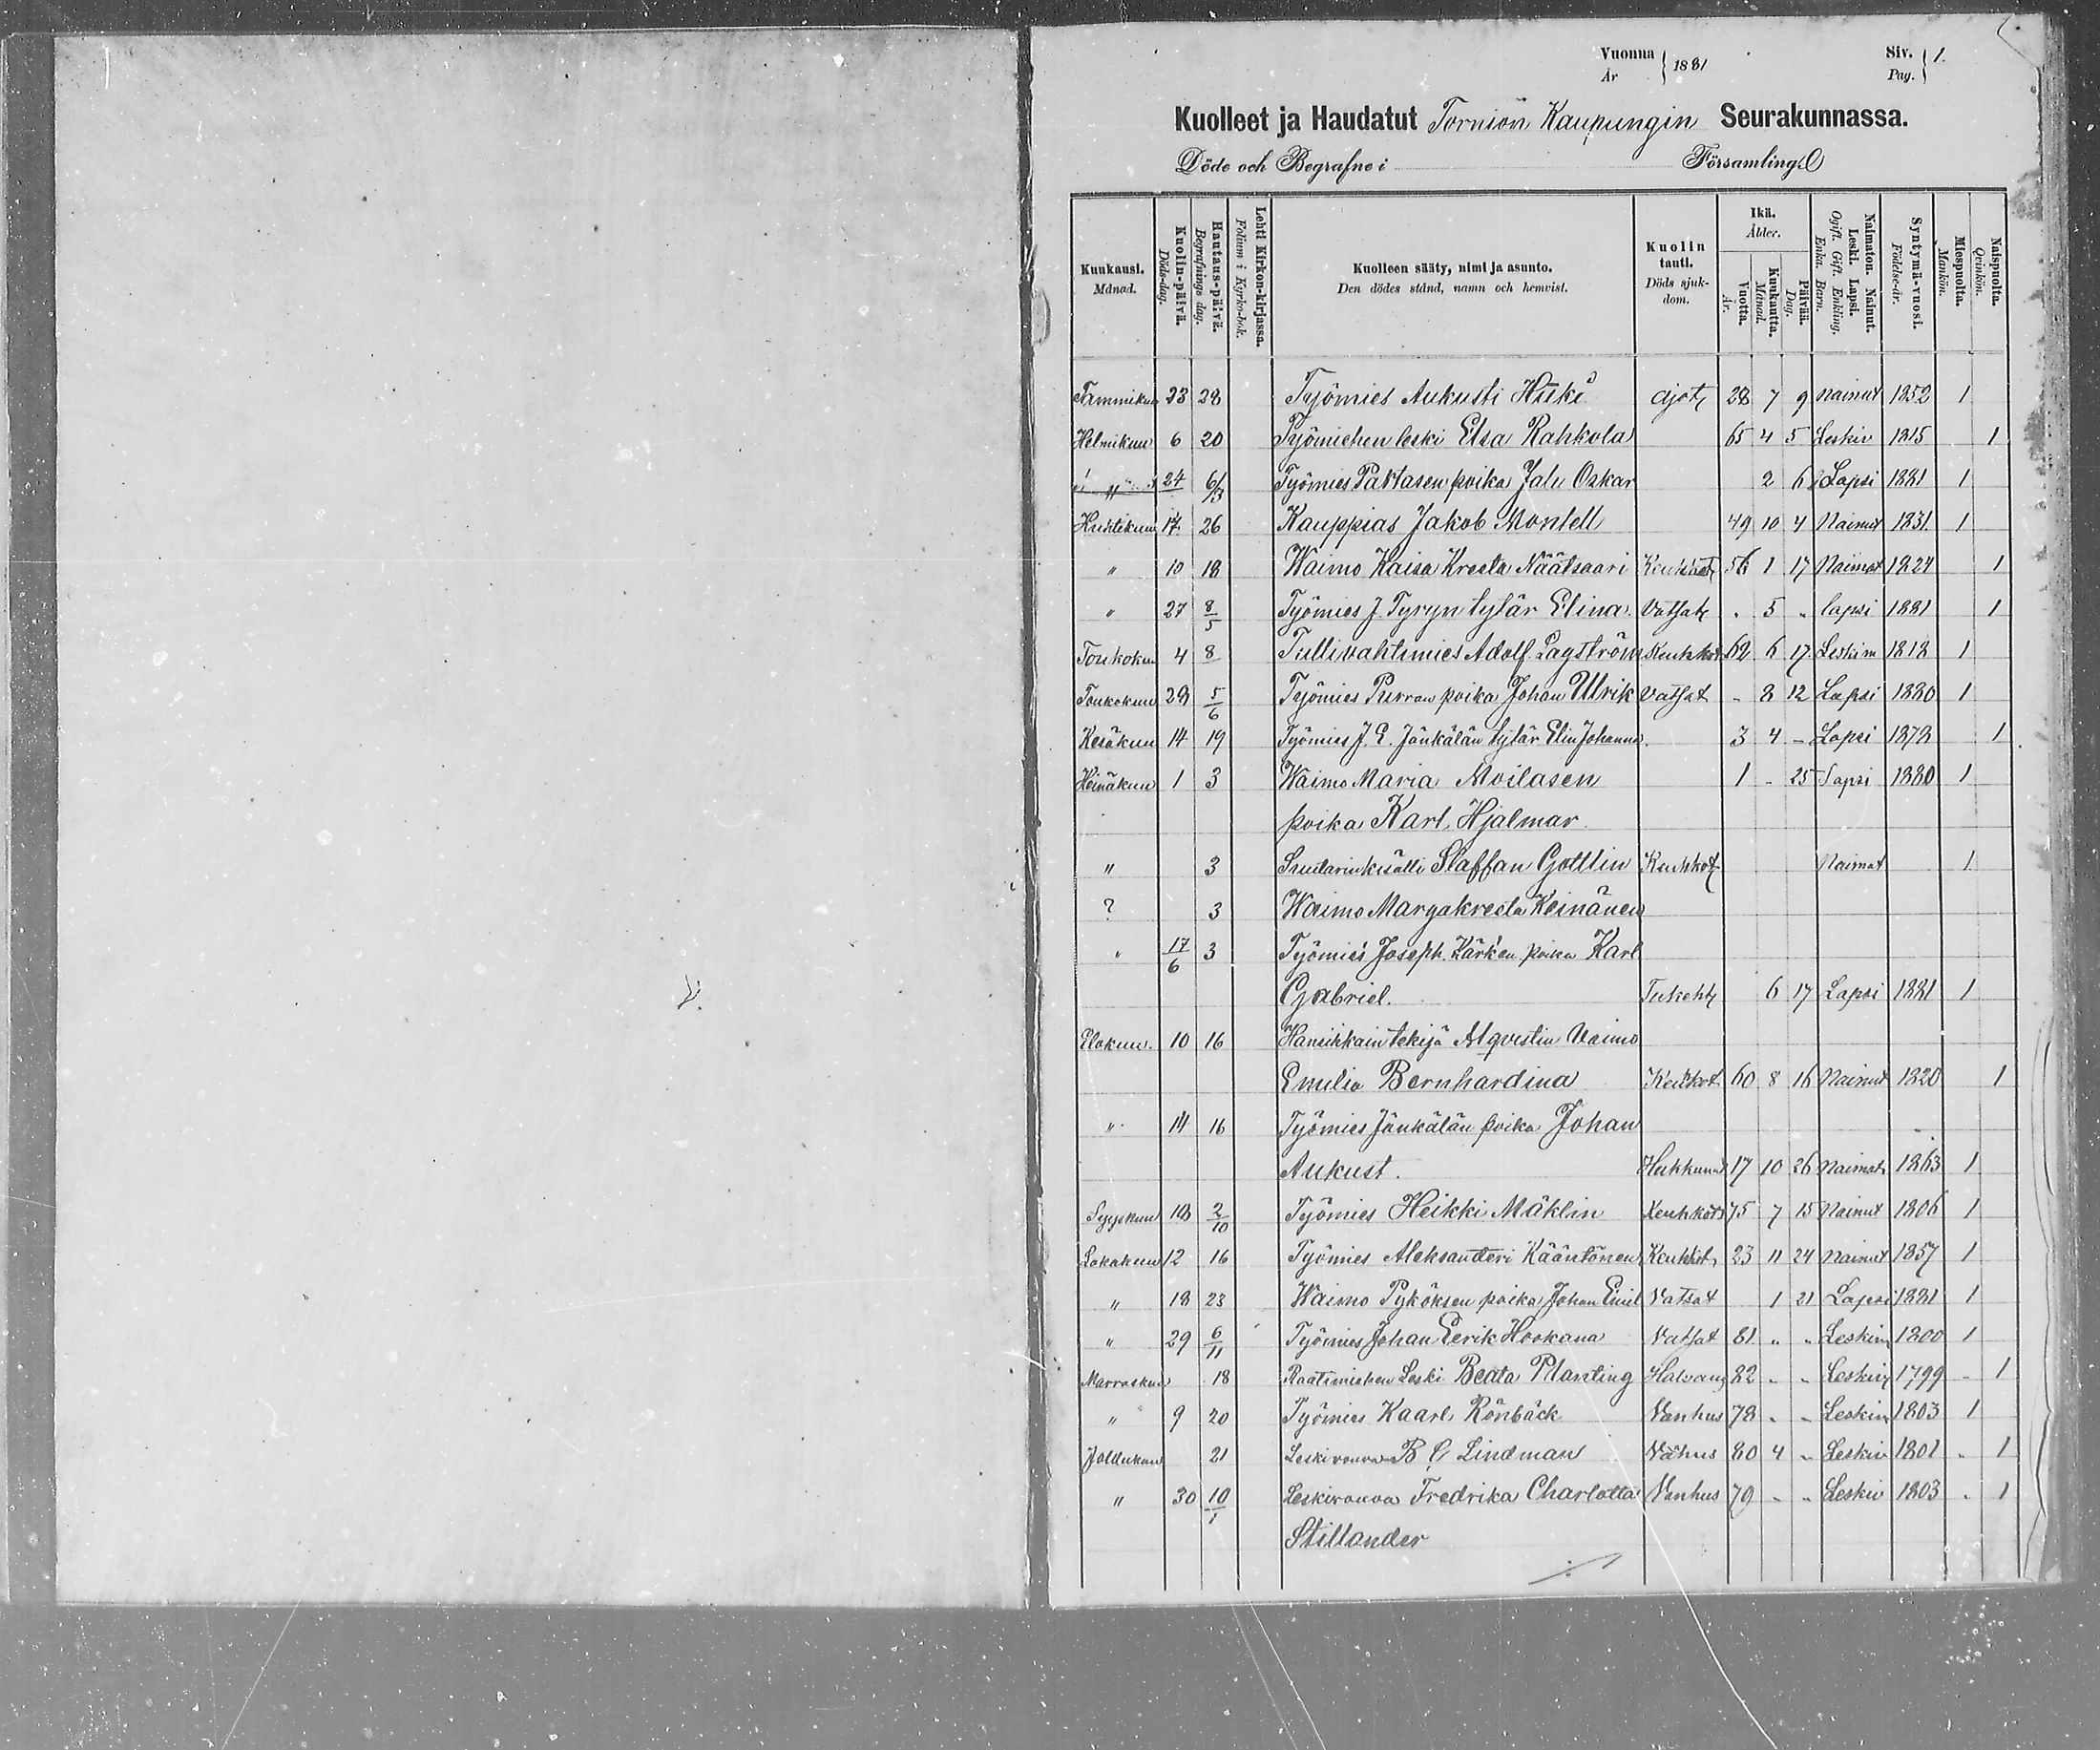 Vuonna 1881 Siv. 1.
År Pag.
Kuolleet ja Haudatut Tornion Kaupungin Seurakunnassa.
Döde och Begrafne i Församling.
Kuukausi. Månad. Kuolin-päivä. Döds-dag. Hautaus-päivä. Begrafnings dag. Lehti Kirkon-kirjassa. Folium i Kyrko-bok. Kuolleen sääty, nimi ja asunto. Den dödes stånd, namn och hemvist. Kuolin tauti. Döds sjukdom. Ikä. Ålder. Vuotta. År. Kuukautta. Månad. Päivää. Dag. Naimaton. Nainut. Leski. Lapsi. Ogift. Gift. Enkling. Enka. Barn. Syntymä-vuosi. Födelse-år. Miespuolta. Mankön. Naispuolta. Qvinkön.
Tammikuu 23 28 Työmies Aukusti Hiiki ajot 28 7 9 nainut 1852 1
Helmikuu 6 20 Työmiehen leski Elsa Rahkola 65 4 5 Leskiv 1815 1
" 24 6/3 Työmies Paktasen poika Jalu Oskar 2 6 Lapsi 1881 1
Huhtikuu 17. 26 Kauppias Jakob Montell 49 10 4 Nainut 1831. 1
" 10 18 Waimo Kaisa Kreeta Näätsaari 56 1 17 Naimat 1824 1
" 27 8/5 Työmies J. Tyryn tytär Elina. Vatsat . 5 " lapsi 1881 1
Toukokuu 4 8 Tullivahtimies Adolf Lagström Keuhkot 62 6 17. Leskim 1818 1
Toukokuu 29 5/6 Työmies Purran poika Johan Ulrik Vatsat - 8 12 Lapsi 1880 1
Kesäkuu 14 19 Työmies J. E. Jänkälän tytär Elin Johanna. 3 4 - Lapsi 1878 1
Heinäkuu 1 3 Waimo Maria Moilasen 1 - 25 Lapsi 1880 1
poika Karl Hjalmar
" 3 Suutarinkisälli Staffan Gottlin Keuhkot Naimat 1
? 3 Waimo Margakreeta Keinänen
" 17/6 3 Työmies Joseph Kärk'en poika Karl
Gabriel. Tukeht 6 17 Lapsi 1881 1
Elokuu. 10 16 Hansikkaintekijä Alqvistin Vaimo
Emilia Bernhardina Keuhkot 60 8 16 Nainut 1820 1
" 14 16 Työmies Jänkälän poika Johan
Aukust. Hukkunut 17 10 26 Naimat 1863 1
Syyskuu 18 2/10 Työmies Heikki Mäklin Keuhkot 75 7 15 Nainut 1806 1
Lokakuu 12 16 Työmies Aleksanderi Kääntönen Keuhkot 23 11 24 Nainut 1857 1
" 18 23 Waimo Pyköksen poika Johan Emil Vatsat 1 21 Lapsi 1881 1
" 29 6/11 Työmies Johan Eerik Hookana Vatsat 81 " " Leskim 1800 1
Marraskuu 18 Raatimiehen Leski Beata Planting Halvaus 82 " " Leskiv 1799 - 1
" 9 20 Työmies Kaarl Rönbäck Vanhus 78 " " Leskim 1803 1
Joulukuu 21 Leskirouva B C Lindman Vanhus 80 4 " Leskiv 1801 " 1
" 30 10/1 Leskirouva Fredrika Charlotta Vanhus 79 " " Leskiv 1803 . 1
Stillander